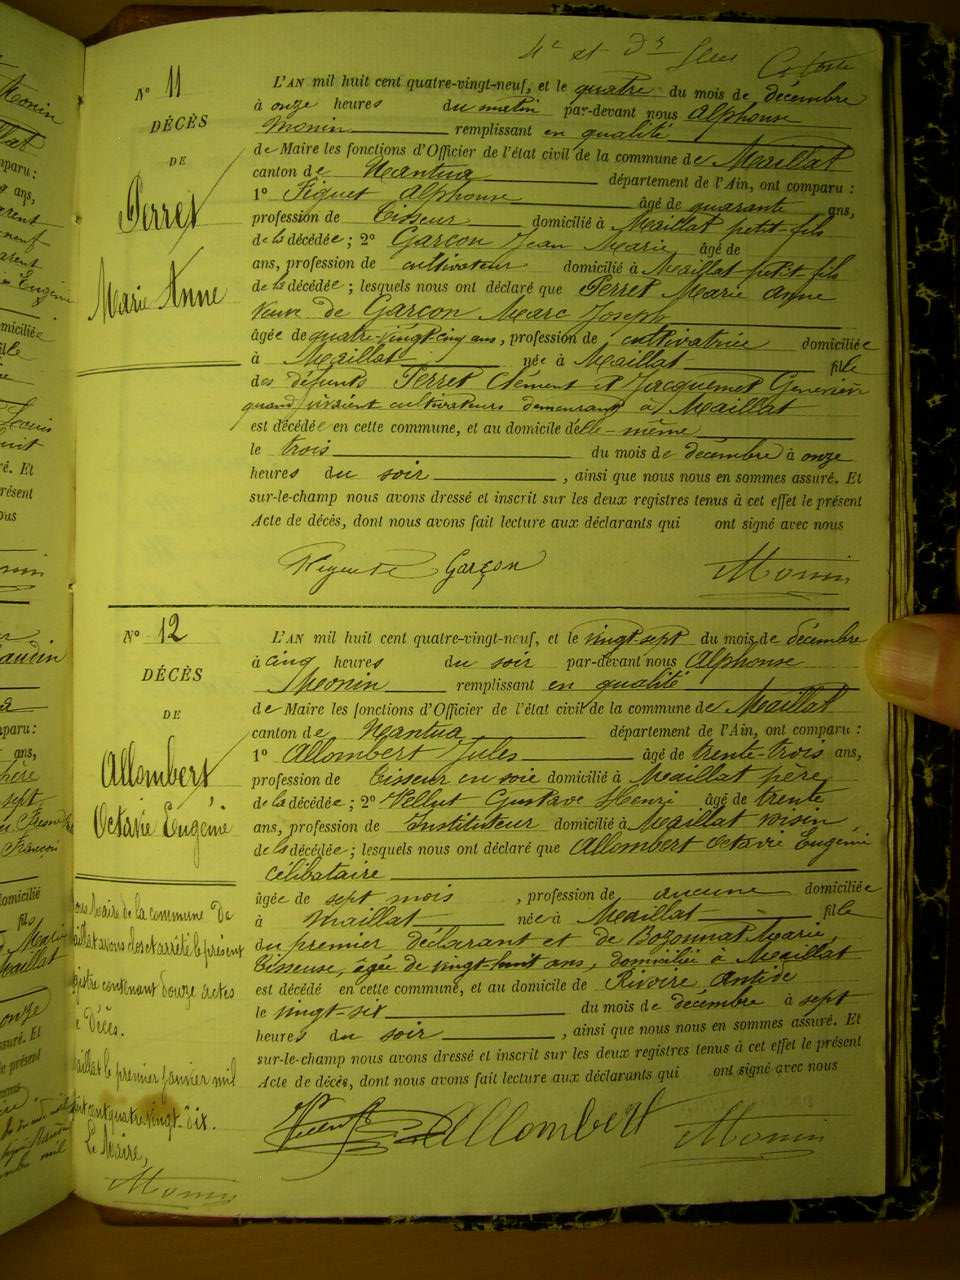 4e et
N° 11
DÉCÈS
DE
Perret
Marie Anne
L'AN mil huit cent quatre-vingt-neuf, et le quatre du mois de décembre
à onze heures du matin par-devant nous Alphonse
Monin remplissant en qualité
de Maire les fonctions d'Officier de l'état civil de la commune de Maillat
canton de Nantua département de l'Ain, ont comparu :
1° Piquet Alphonse âgé de quarante ans,
profession de Tisseur domicilié à Maillat petit-fils
de la décédée ; 2° Garçon Jean Marie âgé de
ans, profession de cultivateur domicilié à Maillat petit fils
de la décédée ; lesquels nous ont déclaré que Perret Marie Anne
veuve de Garçon Marc Joseph
âgée de quatre-vingt cinq ans, profession de cultivatrice domiciliée
à Maillat née à Maillat fille
des défunts Perret Clément et Jacquemet
quand vivaient cultivateurs demeurant à Maillat
est décédée en cette commune, et au domicile d'elle-même
le trois du mois de décembre à onze
heures du soir , ainsi que nous nous en sommes assuré. Et
sur-le-champ nous avons dressé et inscrit sur les deux registres tenus à cet effet le présent
Acte de décès, dont nous avons fait lecture aux déclarants qui ont signé avec nous
Garçon Monin
N° 12
DÉCÈS
DE
Allombert
Octavie Eugénie
L'AN mil huit cent quatre-vingt-neuf, et le vingt-sept du mois de décembre
à cinq heures du soir par-devant nous Alphonse
Monin remplissant en qualité
de Maire les fonctions d'Officier de l'état civil de la commune de Maillat
canton de Nantua département de l'Ain, ont comparu :
1° Allombert Jules âgé de trente-trois ans,
profession de Tisseur en soie domicilié à Maillat père
de la décédée ; 2° Gustave Henri âgé de trente
ans, profession de Instituteur domicilié à Maillat voisin
de la décédée ; lesquels nous ont déclaré que Allombert Octavie Eugénie
célibataire
âgée de sept mois , profession de aucune domiciliée
à Maillat née à Maillat fille
du premier déclarant et de Bozonnat Marie,
Tisseuse, âgée de vingt-huit ans, domiciliée à Maillat
est décédé en cette commune, et au domicile de Rivoire
le vingt-six du mois de décembre à sept
heures du soir , ainsi que nous nous en sommes assuré. Et
sur-le-champ nous avons dressé et inscrit sur les deux registres tenus à cet effet le présent
Acte de décès, dont nous avons fait lecture aux déclarants qui ont signé avec nous
Allombert Monin
Maire de la commune de
avons clos et arrêté le présent
contenant douze actes
Décès.
le premier janvier mil
cent quatre-vingt-dix.
Le Maire,
Monin